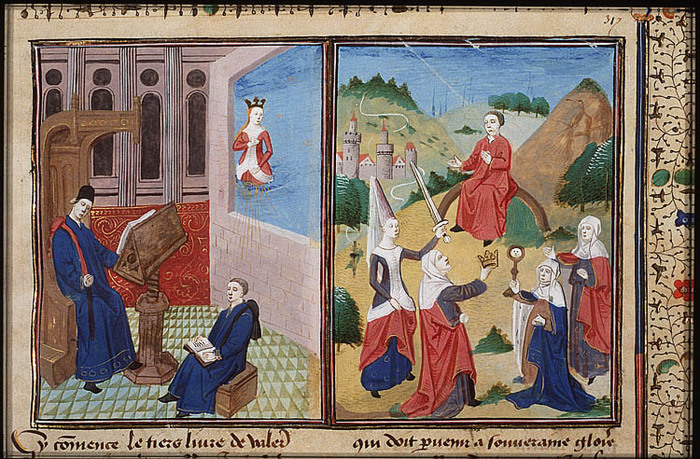 317
Cy cōmence le tiers liure de valer
qui doit ꝑuenir a souueraine gloire